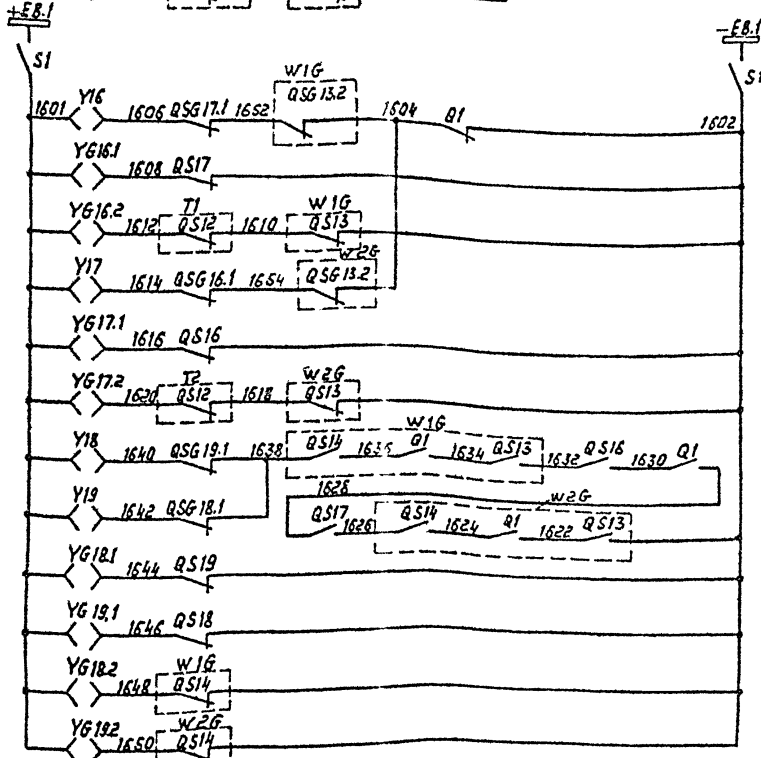 +EB.1
-EB.1
S1
S1
W1G
1601 Y16 1606 QSG17.1 1652 QSG13.2 1604 Q1 1602
YG16.1 1608 QS17
T1 W1G
YG16.2 1612 QS12 1610 QS13
W2G
Y17 1614 QSG16.1 1654 QSG13.2
YG17.1 1616 QS16
T2 W2G
YG17.2 1620 QS12 1618 QS13
W1G
Y18 1640 QSG19.1 1638 QS14 1636 Q1 1634 QS13 1632 QS16 1630 Q1
1628 W2G
Y19 1642 QSG18.1 QS17 1626 QS14 1624 Q1 1622 QS13
YG18.1 1644 QS19
YG19.1 1646 QS18
W1G
YG18.2 1648 QS14
W2G
YG19.2 1650 QS14